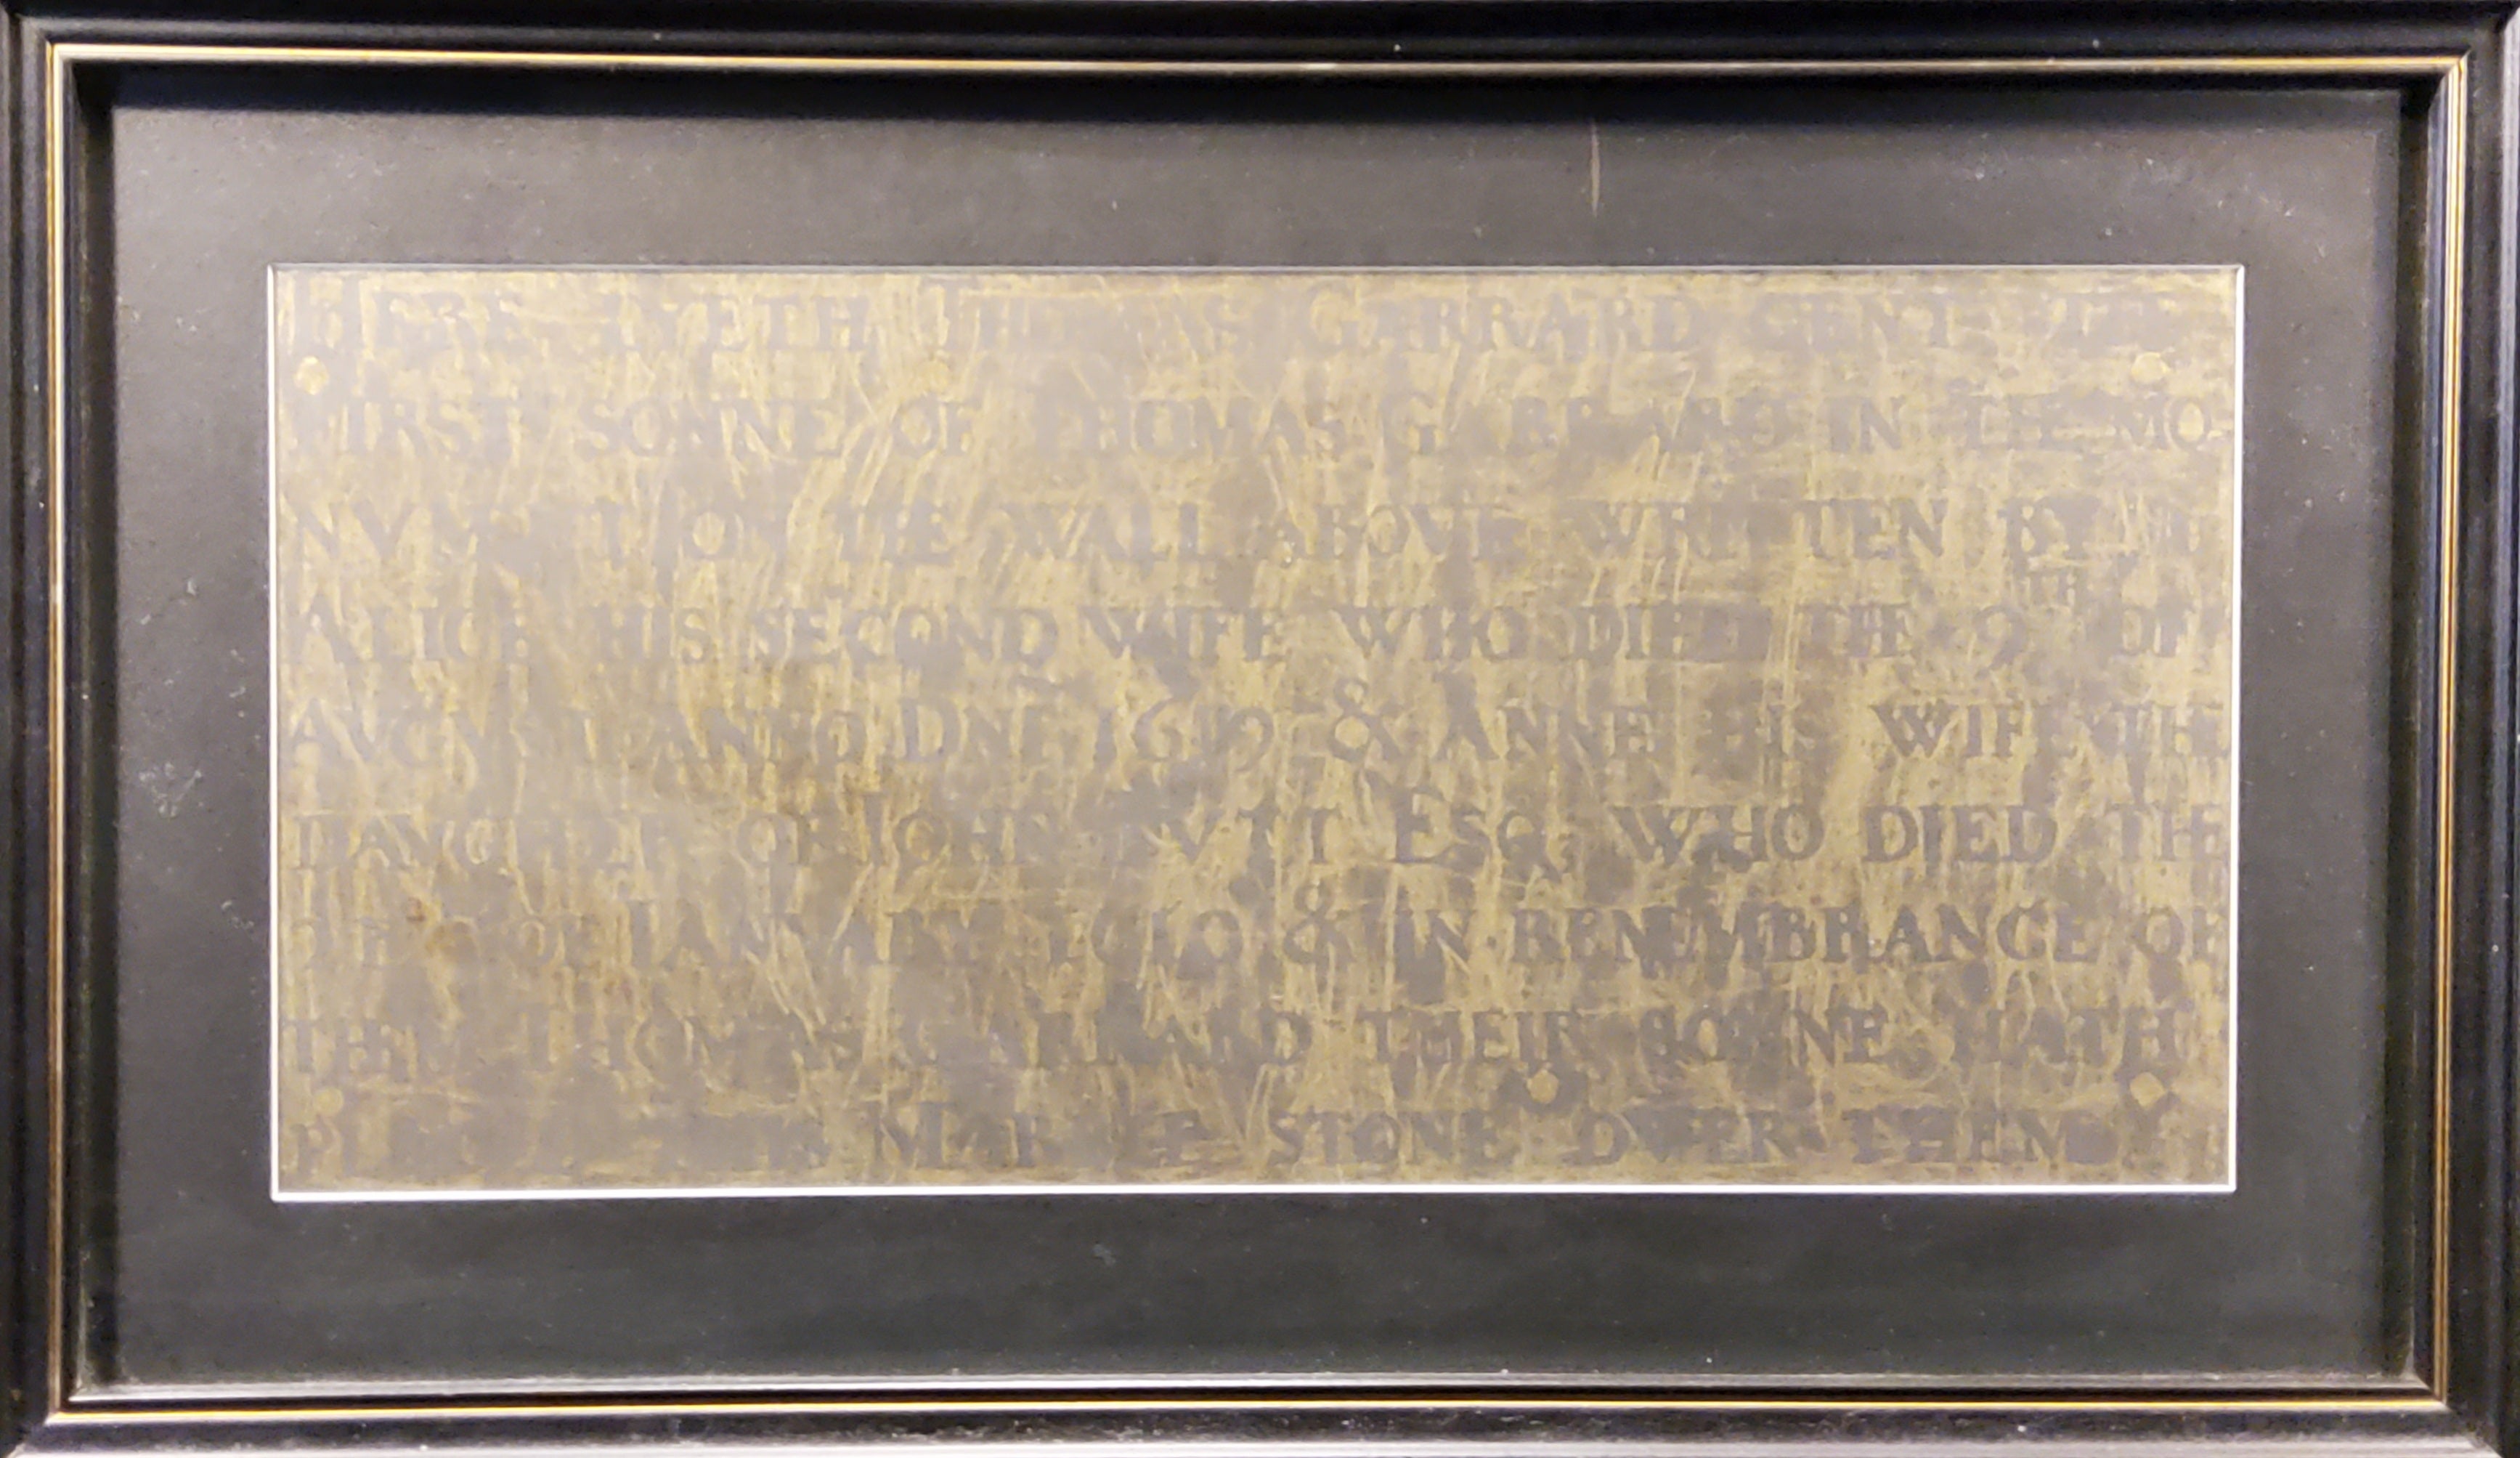 HERE LYETH THOMAS GARRARD GENT THE
FIRST SONNE OF THOMAS GARRARD IN THE MO-
NVMENT ON THE WALL ABOVE WRITTEN BY
ALICE HIS SECOND WIFE WHO DIED THE 9TH OF
AVGVST ANNO DNI & ANNE HIS WIFE THE
DAVGHTER OF IOHN ESQ. WHO DIED THE
OF IANVARY 1610 & IN REMEMBRANCE OF
THEM THOMAS GARRARD THEIR SONNE HATH
PLACED THIS MARBLE STONE OVER THEM